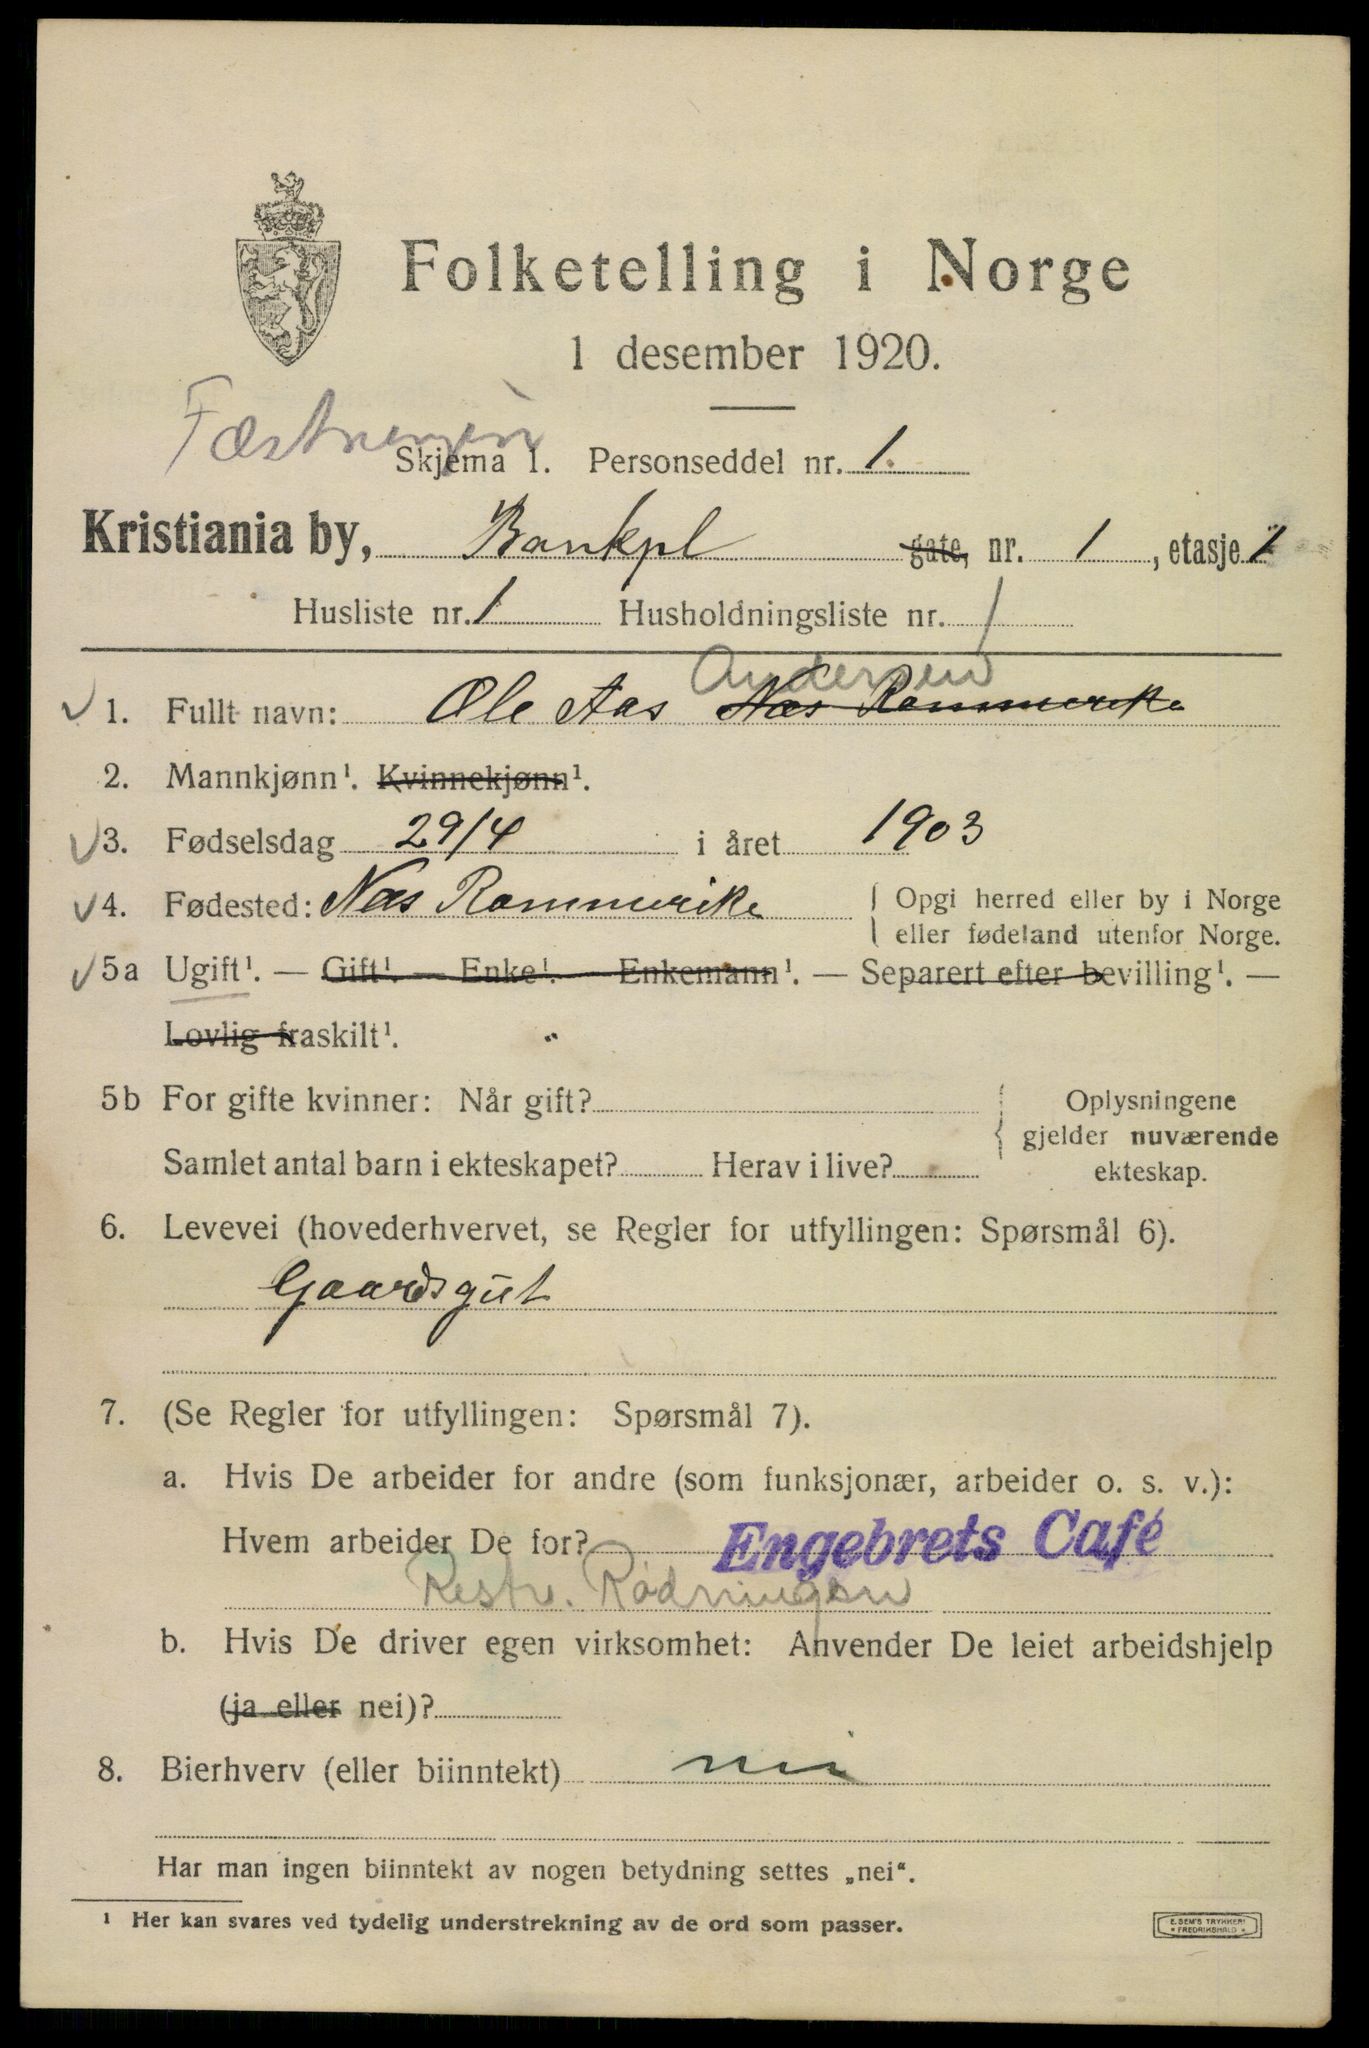 Folketelling i Norge
1 desember 1920.
Fæstningen
Skjema 1. Personseddel nr. 1.
Kristiania by, Bankpl gate, nr. 1, etasje 1
Husliste nr. 1 Husholdningsliste nr. 1
Andersen
1. Fullt navn: Ole Aas Næs Rommerike
2. Mannkjønn¹. Kvinnekjønn¹.
3. Fødselsdag 29/4 i året 1903
4. Fødested: Næs Rommerike { Opgi herred eller by i Norge
eller fødeland utenfor Norge.
5a Ugift¹. — Gift¹. — Enke¹. — Enkemann¹. — Separert efter bevilling¹. —
Lovlig fraskilt¹.
5b For gifte kvinner: Når gift? { Oplysningene
gjelder nuværende
Samlet antal barn i ekteskapet? Herav i live? ekteskap.
6. Levevei (hovederhvervet, se Regler for utfyllingen: Spørsmål 6).
Gaardsgut
7. (Se Regler for utfyllingen: Spørsmål 7).
a. Hvis De arbeider for andre (som funksjonær, arbeider o. s. v.):
Hvem arbeider De for? Engebrets Café
Restr. Rødningen
b. Hvis De driver egen virksomhet: Anvender De leiet arbeidshjelp
(ja eller nei)?
8. Bierhverv (eller biinntekt) nei
Har man ingen biinntekt av nogen betydning settes „nei“.
¹ Her kan svares ved tydelig understrekning av de ord som passer.
E. SEM'S TRYKKERI
* FREDRIKSHALD *